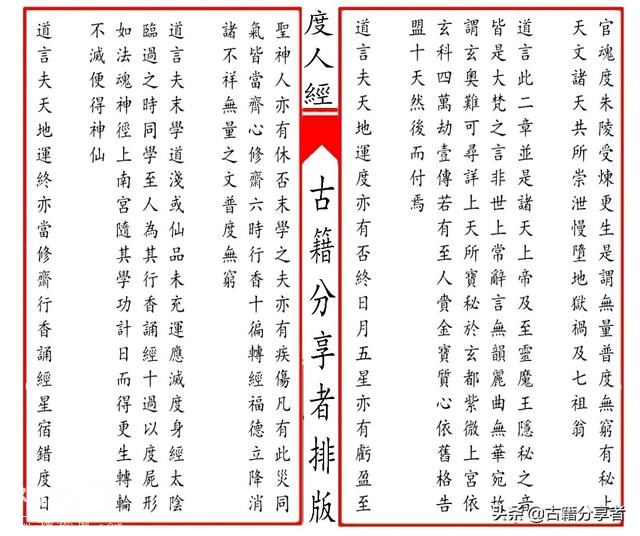 官魂度朱陵受煉更生是謂無量普度無窮有秘上
天文諸天共所崇泄慢墮地獄禍及七祖翁
道言此二章並是諸天上帝及至靈魔王隱秘之音
皆是大梵之言非世上常辭言無韻麗曲無華宛故
謂玄奧難可尋詳上天所寶秘於玄都紫微上宮依
玄科四萬劫壹傳若有至人賫金寶質心依舊格告
盟十天然後而付焉
道言夫天地運度亦有否終日月五星亦有虧盈至
度人經
古籍分享者排版
聖神人亦有休否末學之夫亦有疾傷凡有此災同
氣皆當齊心修齋六時行香十徧轉經福德立降消
諸不祥無量之文普度無窮
道言夫末學道淺或仙品未充運應滅度身經太陰
臨過之時同學至人為其行香誦經十過以度屍形
如法魂神徑上南宮隨其學功計日而得更生轉輪
不滅便得神仙
道言夫天地運終亦當修齋行香誦經星宿錯度日
头条 @古籍分享者